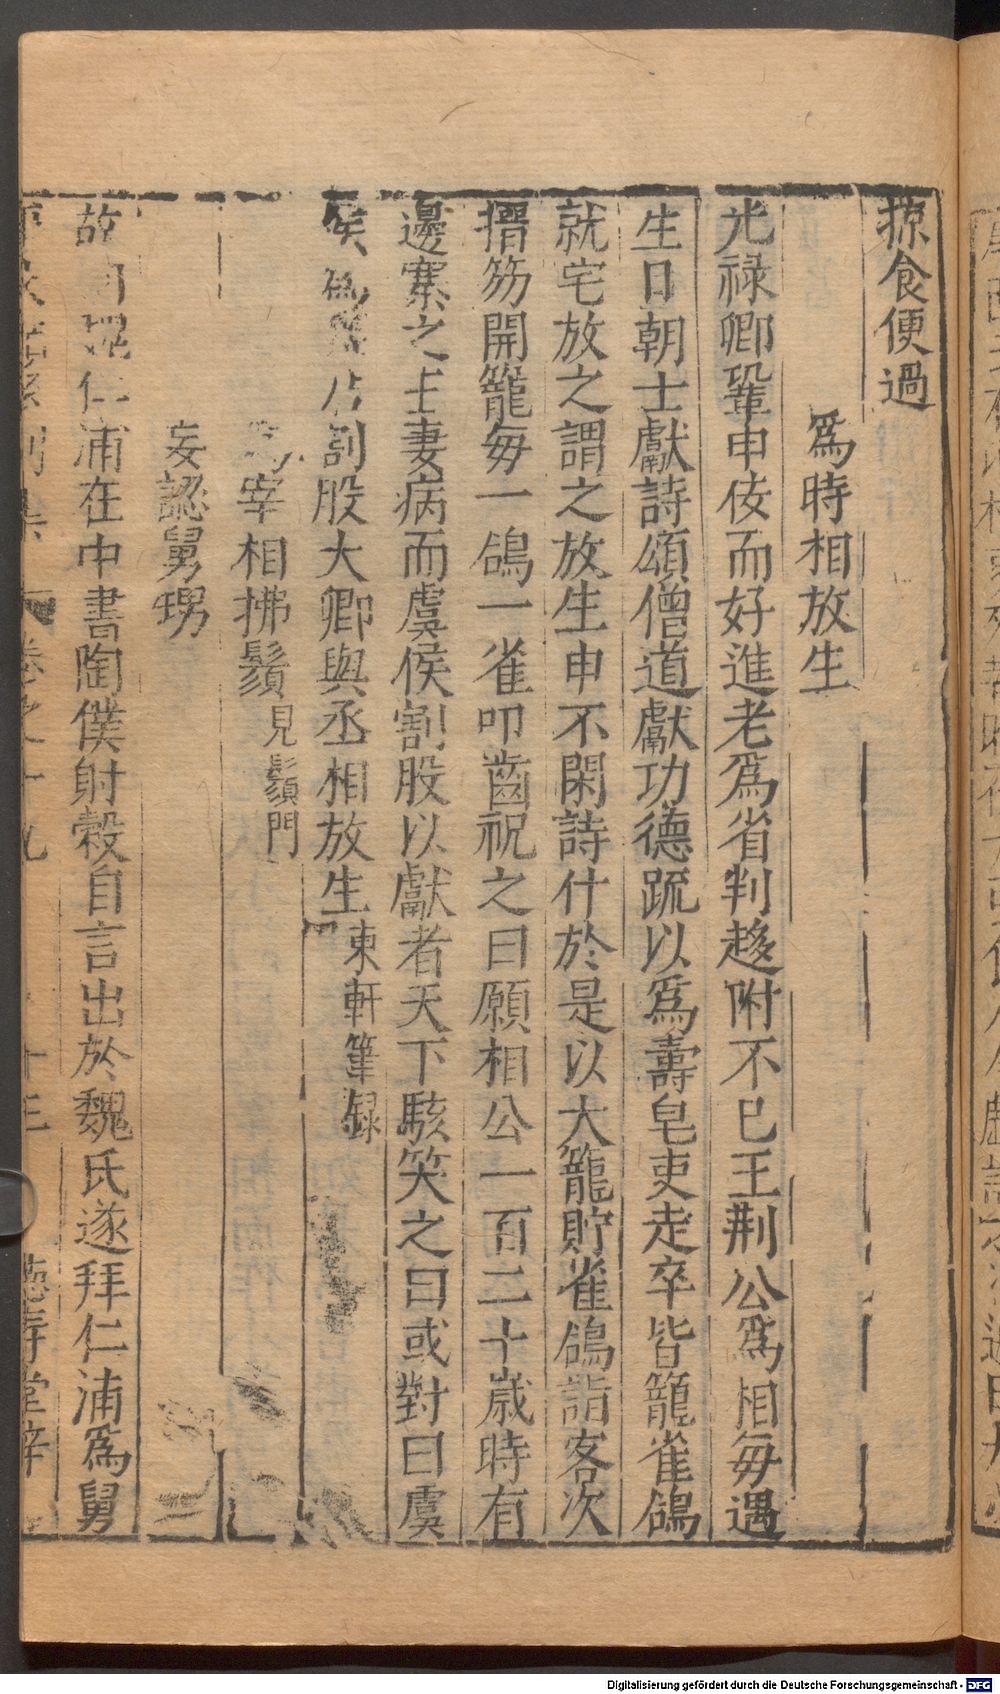 掠食便過
爲時相放生
光禄卿鞏申佞而好進老爲省判趍附不已王荆公爲相每遇
生日朝士獻詩頌僧道獻功德䟽以爲壽皂吏走卒皆籠雀鴿
就宅放之謂之放生申不閑詩什於是以大籠貯雀鴿詣客次
搢笏開籠每一鴿一雀叩齒祝之曰願相公一百二十歲時有
邊寨之主妻病而虞侯割股以獻者天下駭笑之曰或對曰虞
侯爲割股大卿與丞相放生東軒筆録
爲宰相拂鬚見鬚門
妄認舅甥
故相魏仁浦在中書陶僕射榖自言出於魏氏遂拜仁浦爲舅
別集 卷之十九 十三 德壽堂梓
Digitalisierung gefördert durch die Deutsche Forschungsgemeinschaft - DFG